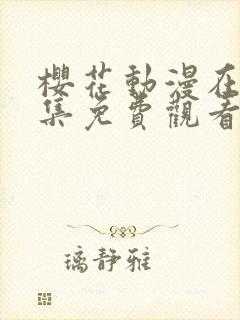 櫻花動漫在
集免費觀看
璃靜雅